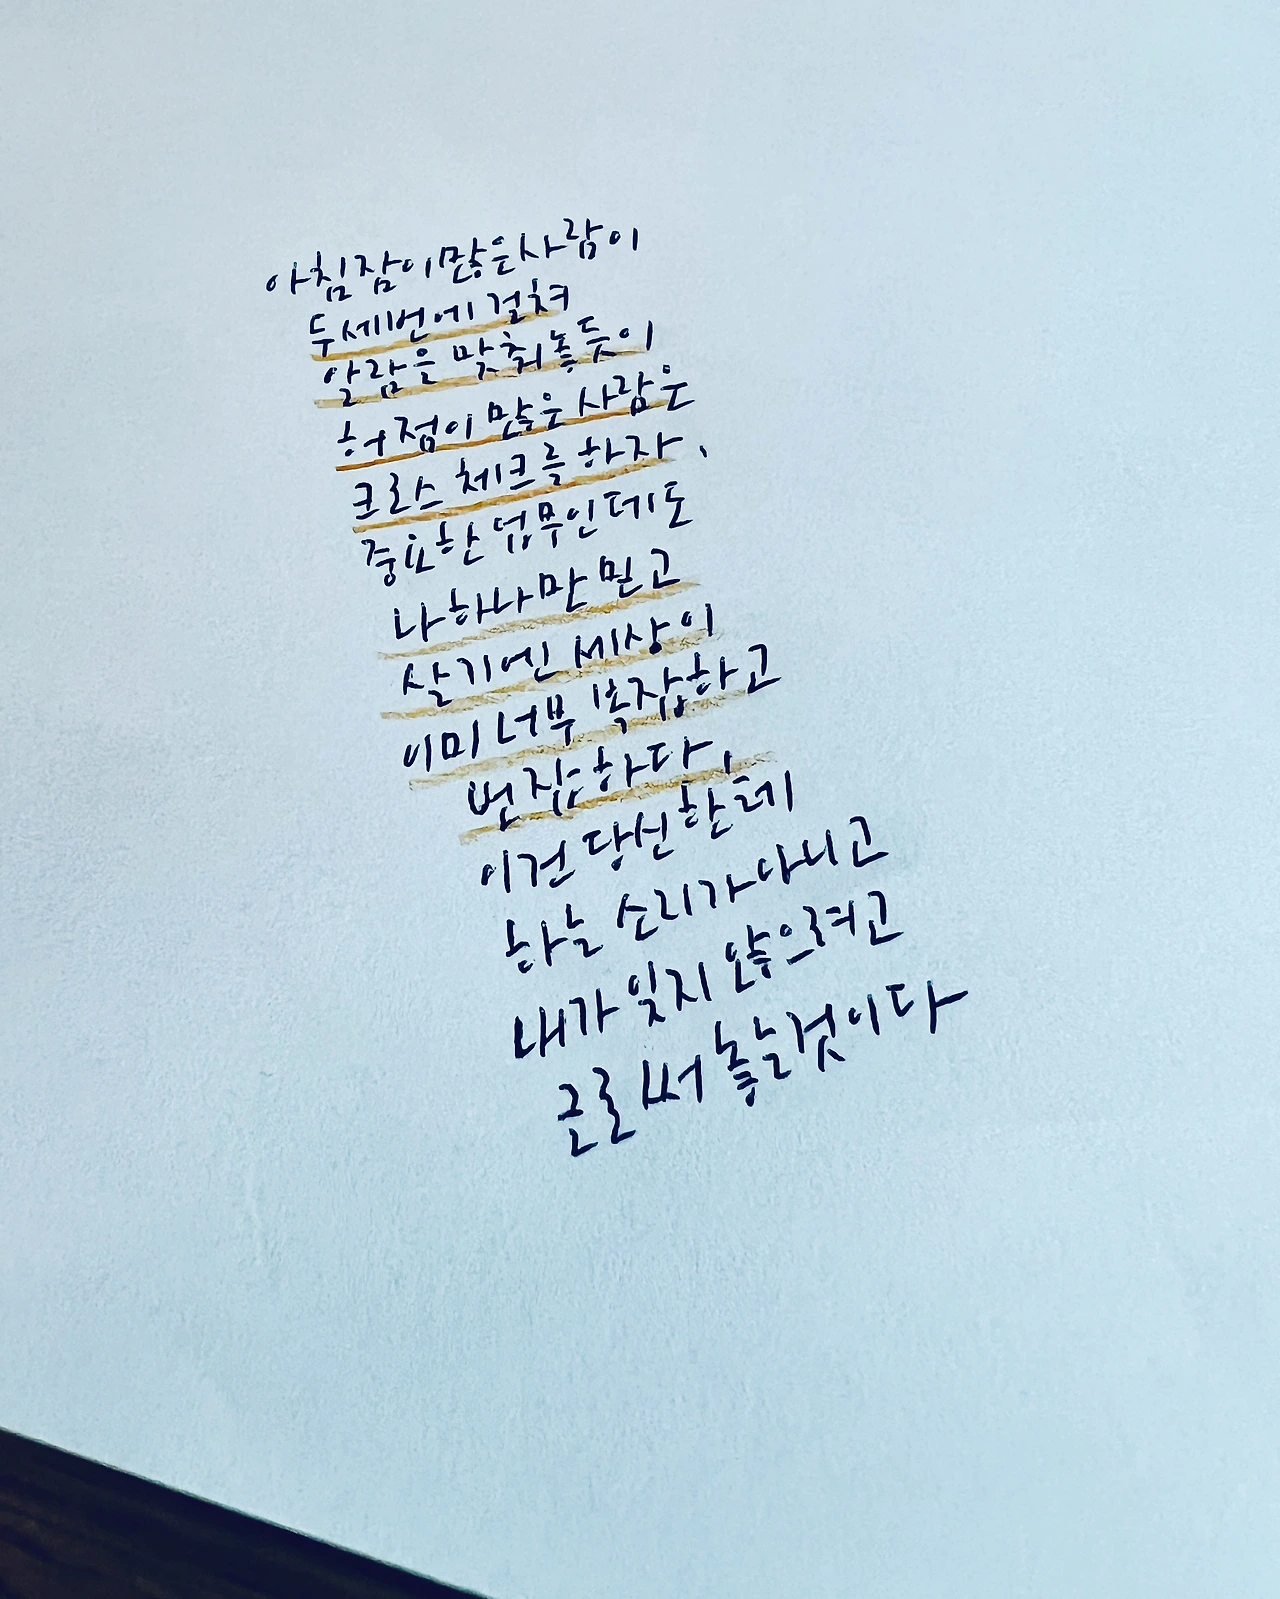 아침잠이많은사람이
두세번에 걸쳐
알람을 맞춰놓듯이
허점이 많은 사람은
크로스 체크를 하자.
중요한 업무인데도
나하나만 믿고
살기엔 세상이
이미 너무 복잡하고
번잡하다.
이건 당신한테
하는 소리가 아니고
내가 잊지 않으려고
글로 써 놓는것이다